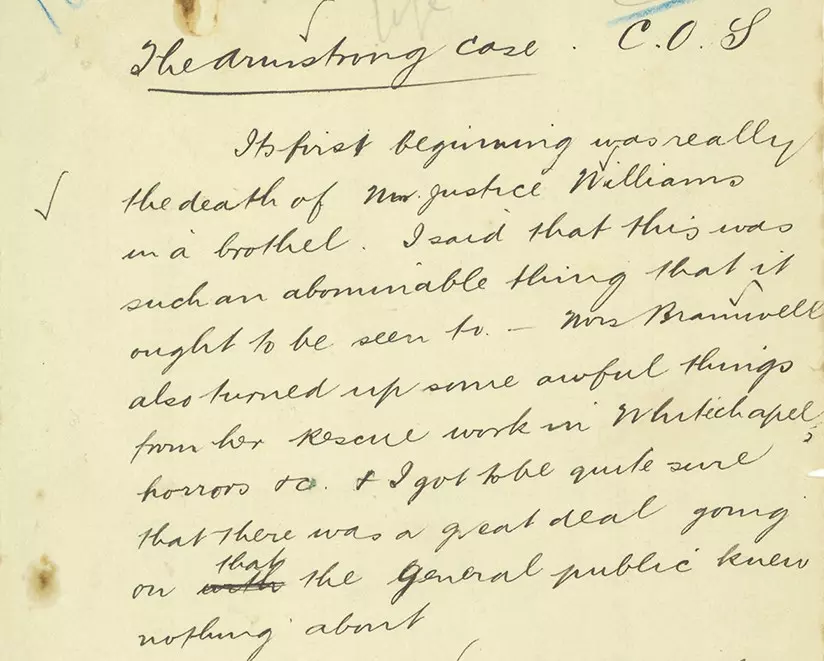 The Armstrong Case. C.O.S
Its first beginning was really
the death of Mr. Justice Williams
in a brothel. I said that this was
such an abominable thing that it
ought to be seen to. — Mrs Bramwell
also turned up some awful things
from her Rescue work in Whitechapel,
horrors &c. & I got to be quite sure
that there was a great deal going
that
on with the General public knew
nothing about